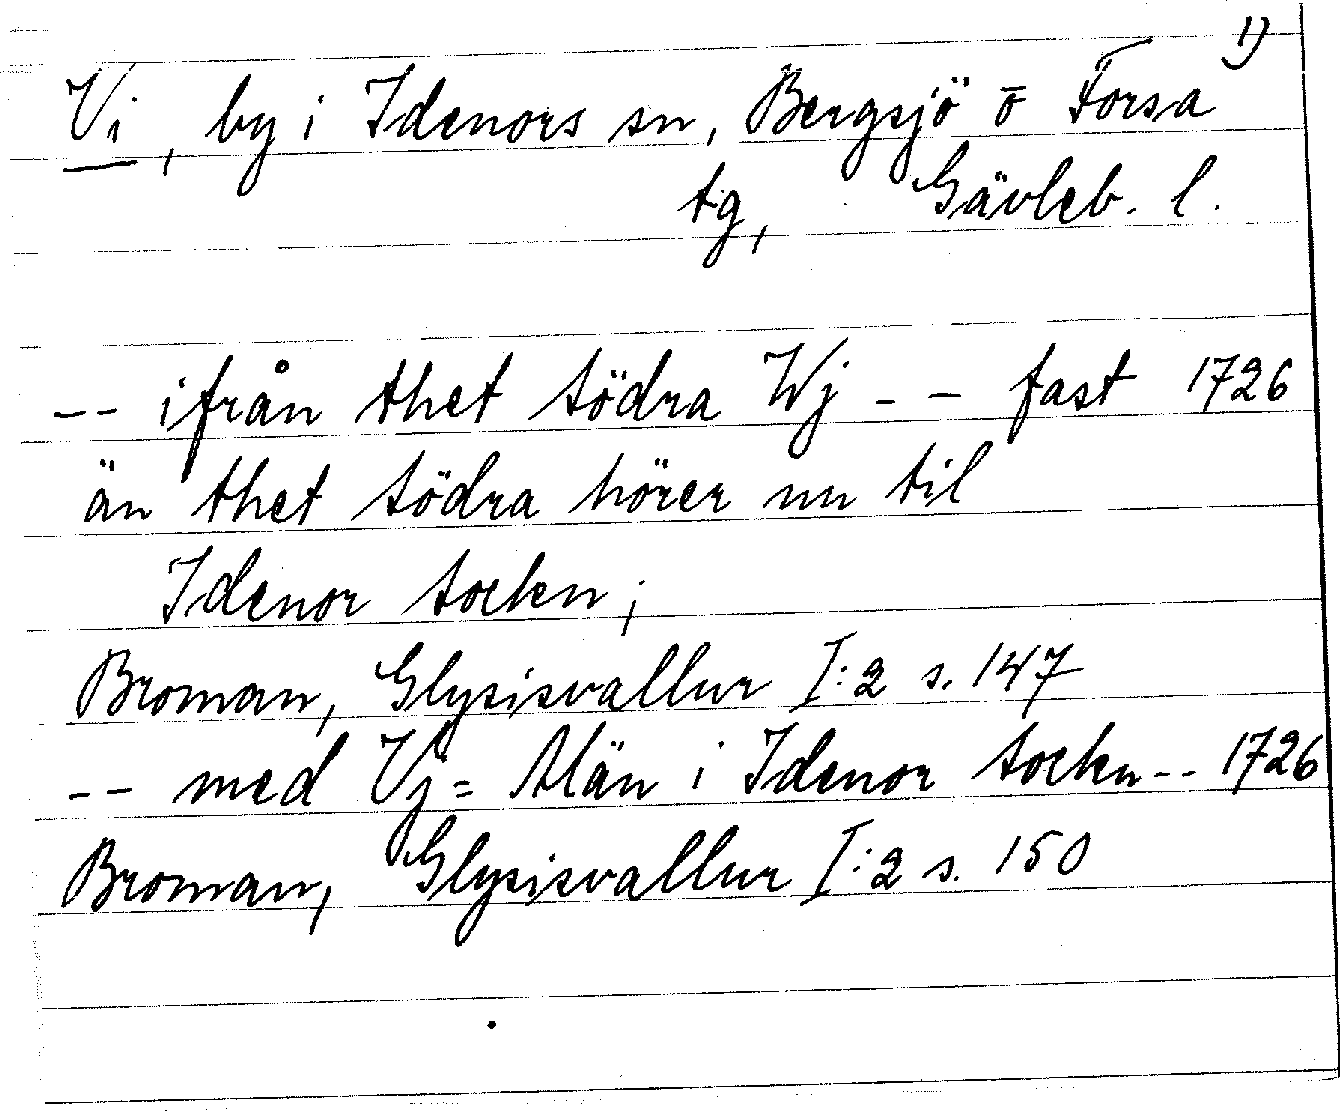 1)
Vi, by i Idenors sn, Bergsjö o Forsa
tg, Gävleb. l.
-- ifrån thet södra Wj -- fast 1726
än thet södra hörer nu til
Idenor sockn;
Broman, Glysisvallur I:2 s. 147
-- med Vj= Män i Idenor sockn -- 1726
Broman, Glysisvallur I:2 s. 150